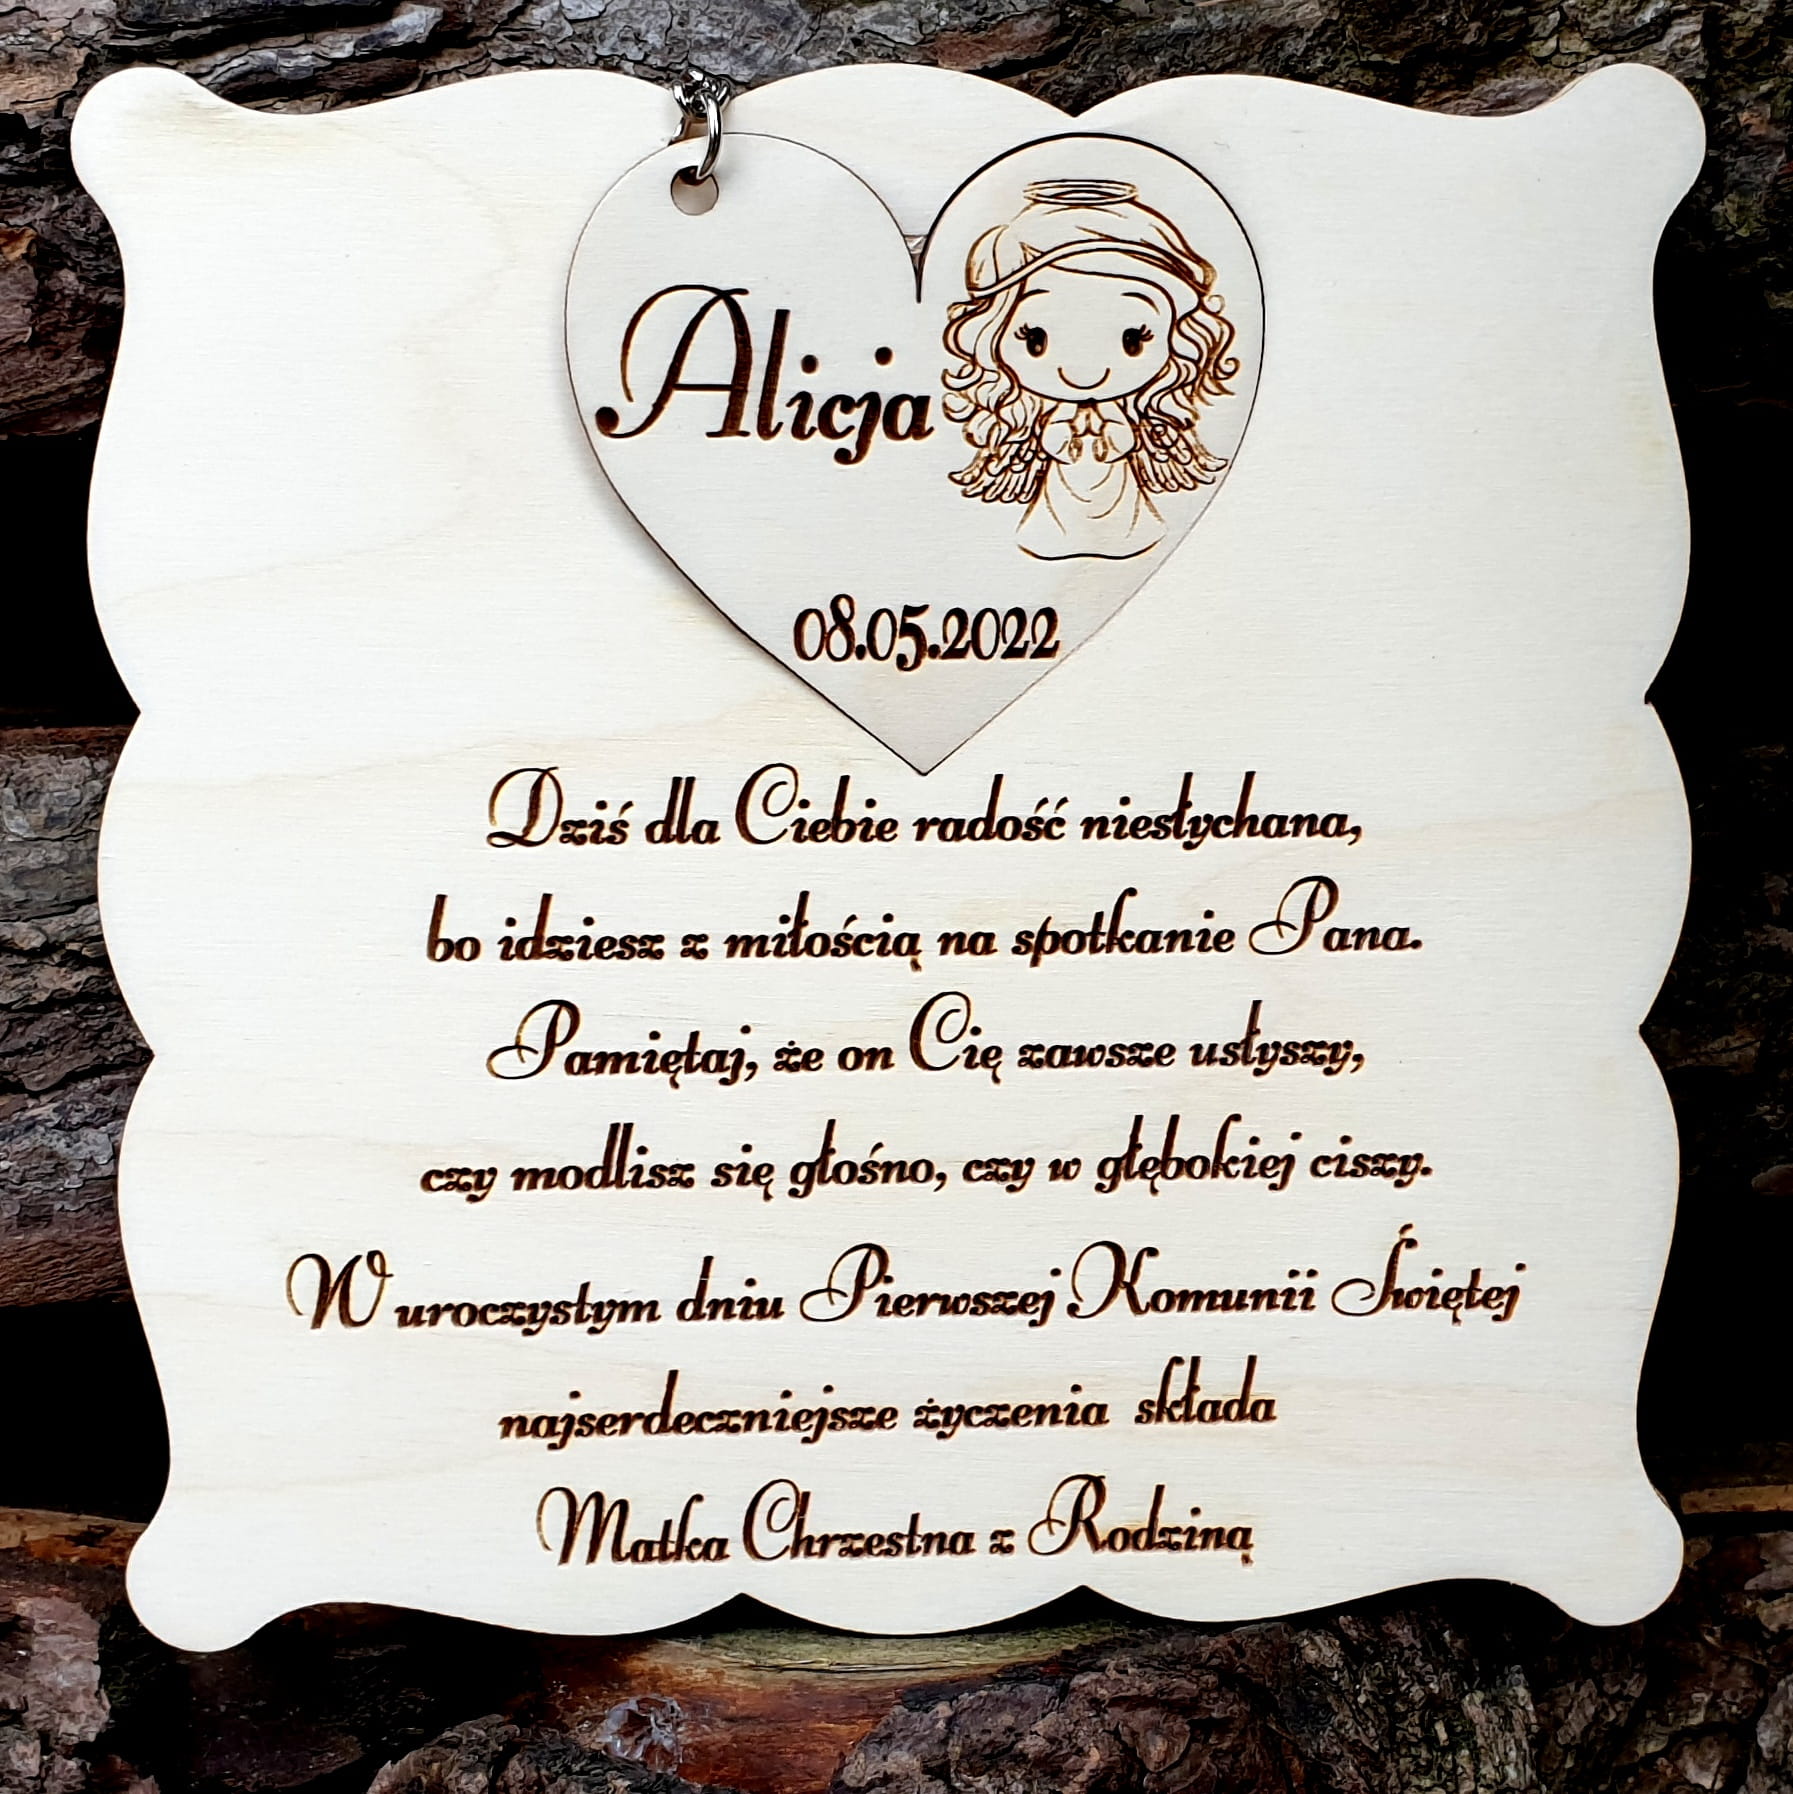 Alicja
08.05.2022
Dziś dla Ciebie radość niesłychana,
bo idziesz z miłością na spotkanie Pana.
Pamiętaj, że on Cię zawsze usłyszy,
czy modlisz się głośno, czy w głębokiej ciszy.
W uroczystym dniu Pierwszej Komunii Świętej
najserdeczniejsze życzenia składa
Matka Chrzestna z Rodziną